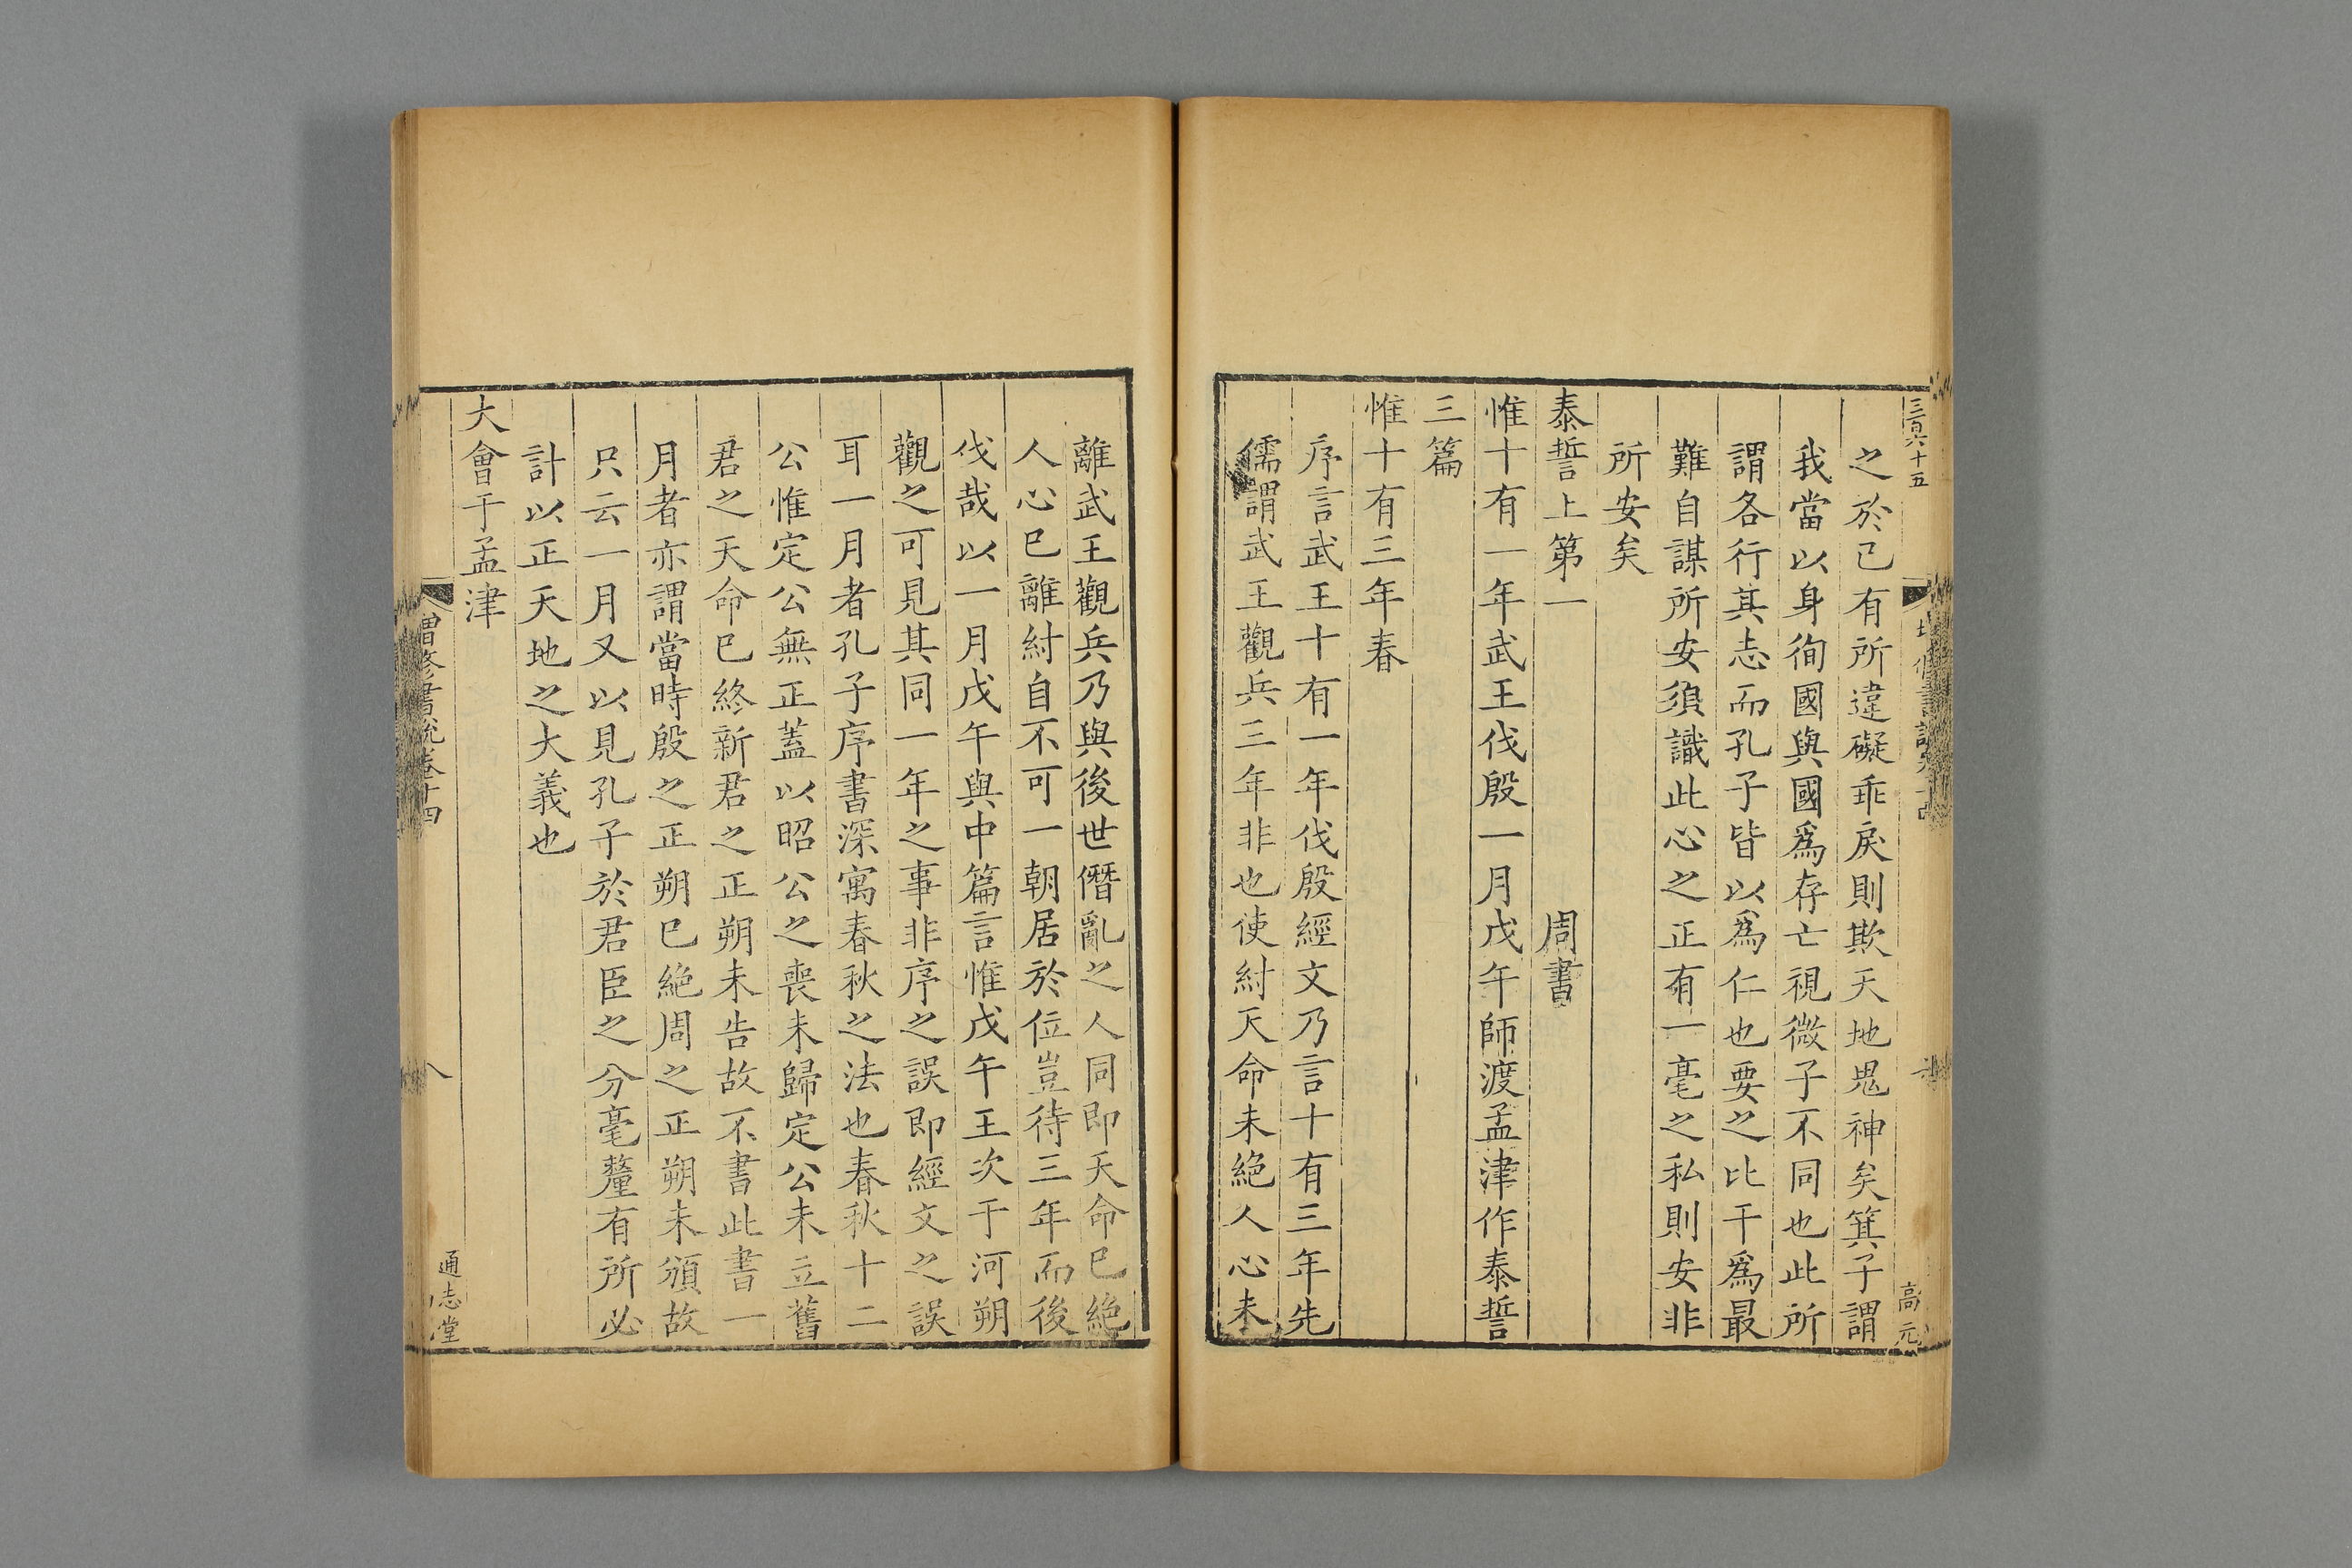 三百六十五
之於己有所違礙乖戾則欺天地鬼神矣箕子謂
我當以身徇國與國爲存亡視微子不同也此所
謂各行其志而孔子皆以爲仁也要之比干爲最
難自謀所安須識此心之正有一毫之私則安非
所安矣
泰誓上第一 周書
惟十有一年武王伐殷一月戊午師渡孟津作泰誓
三篇
惟十有三年春
序言武王十有一年伐殷經文乃言十有三年先
儒謂武王觀兵三年非也使紂天命未絕人心未
高元
離武王觀兵乃與後世僭亂之人同即天命已絕
人心已離紂自不可一朝居於位豈待三年而後
伐哉以一月戊午與中篇言惟戊午王次于河朔
觀之可見其同一年之事非序之誤即經文之誤
耳一月者孔子序書深寓春秋之法也春秋十二
公惟定公無正蓋以昭公之喪未歸定公未立舊
君之天命已終新君之正朔未告故不書此書一
月者亦謂當時殷之正朔已絕周之正朔未頒故
只云一月又以見孔子於君臣之分毫釐有所必
計以正天地之大義也
大會于孟津
增修書說卷十四
八
通志堂